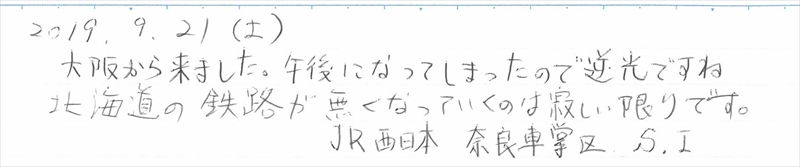 2019.9.21(土)
大阪から来ました。午後になってしまったので逆光ですね
北海道の鉄路が無くなっていくのは寂しい限りです。
JR西日本 奈良車掌区 S.I